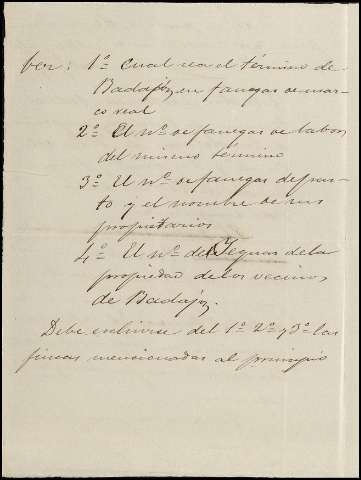 ber: 1º Cual sea el término de
Badajoz en fanegas de mar-
co real
2º El nº de fanegas de labor
del mismo término
3º El nº de fanegas de pas-
to y el nombre de sus
propietarios
4º El nº de Yeguas de la
propiedad de los vecinos
de Badajoz.
Debe escluirse del 1º 2º y 3º las
fincas mencionadas al principio